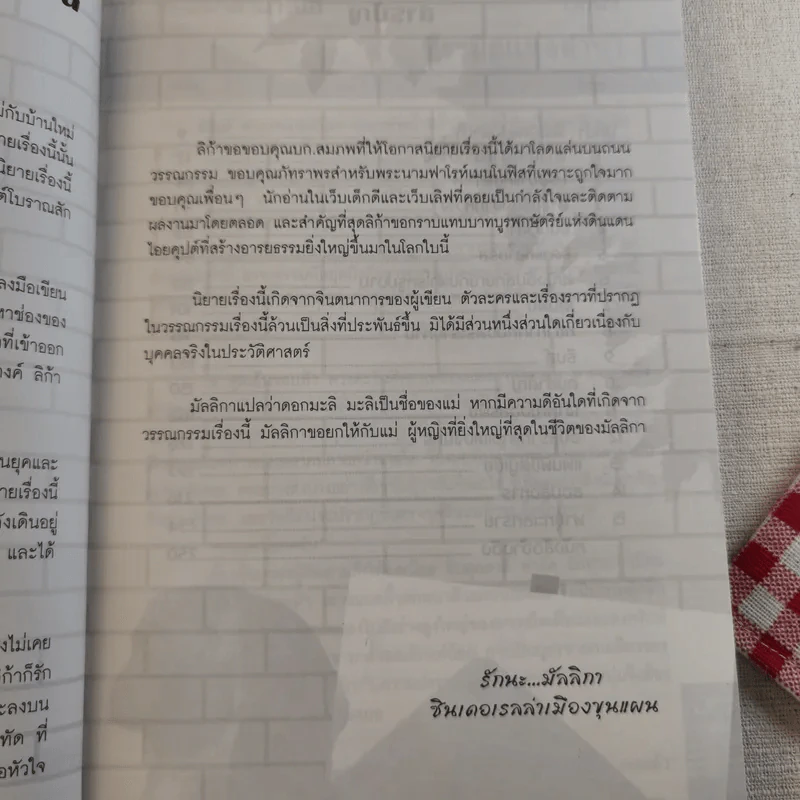 ม่กับบ้านใหม่
ายเรื่องนี้นั้น
นิยายเรื่องนี้
ต์โบราณสัก
ลงมือเขียน
หาช่องของ
ที่เข้าออก
องค์ ลิก้า
นยุคและ
ายเรื่องนี้
ังเดินอยู่
และได้
งไม่เคย
ก้าก็รัก
ะลงบน
ทัด ที่
อหัวใจ
ลิก้าขอขอบคุณบก.สมภพที่ให้โอกาสนิยายเรื่องนี้ได้มาโลดแล่นบนถนน
วรรณกรรม ขอบคุณภัทราพรสำหรับพระนามฟาโรห์เมนโนฟิสที่เพราะถูกใจมาก
ขอบคุณเพื่อนๆ นักอ่านในเว็บเด็กดีและเว็บเลิฟที่คอยเป็นกำลังใจและติดตาม
ผลงานมาโดยตลอด และสำคัญที่สุดลิก้าขอกราบแทบบาทบูรพกษัตริย์แห่งดินแดน
ไอยคุปต์ที่สร้างอารยธรรมยิ่งใหญ่ขึ้นมาในโลกใบนี้
นิยายเรื่องนี้เกิดจากจินตนาการของผู้เขียน ตัวละครและเรื่องราวที่ปรากฏ
ในวรรณกรรมเรื่องนี้ล้วนเป็นสิ่งที่ประพันธ์ขึ้น มิได้มีส่วนหนึ่งส่วนใดเกี่ยวเนื่องกับ
บุคคลจริงในประวัติศาสตร์
มัลลิกาแปลว่าดอกมะลิ มะลิเป็นชื่อของแม่ หากมีความดีอันใดที่เกิดจาก
วรรณกรรมเรื่องนี้ มัลลิกาขอยกให้กับแม่ ผู้หญิงที่ยิ่งใหญ่ที่สุดในชีวิตของมัลลิกา
รักนะ...มัลลิกา
ซินเดอเรลล่าเมืองขุนแผน